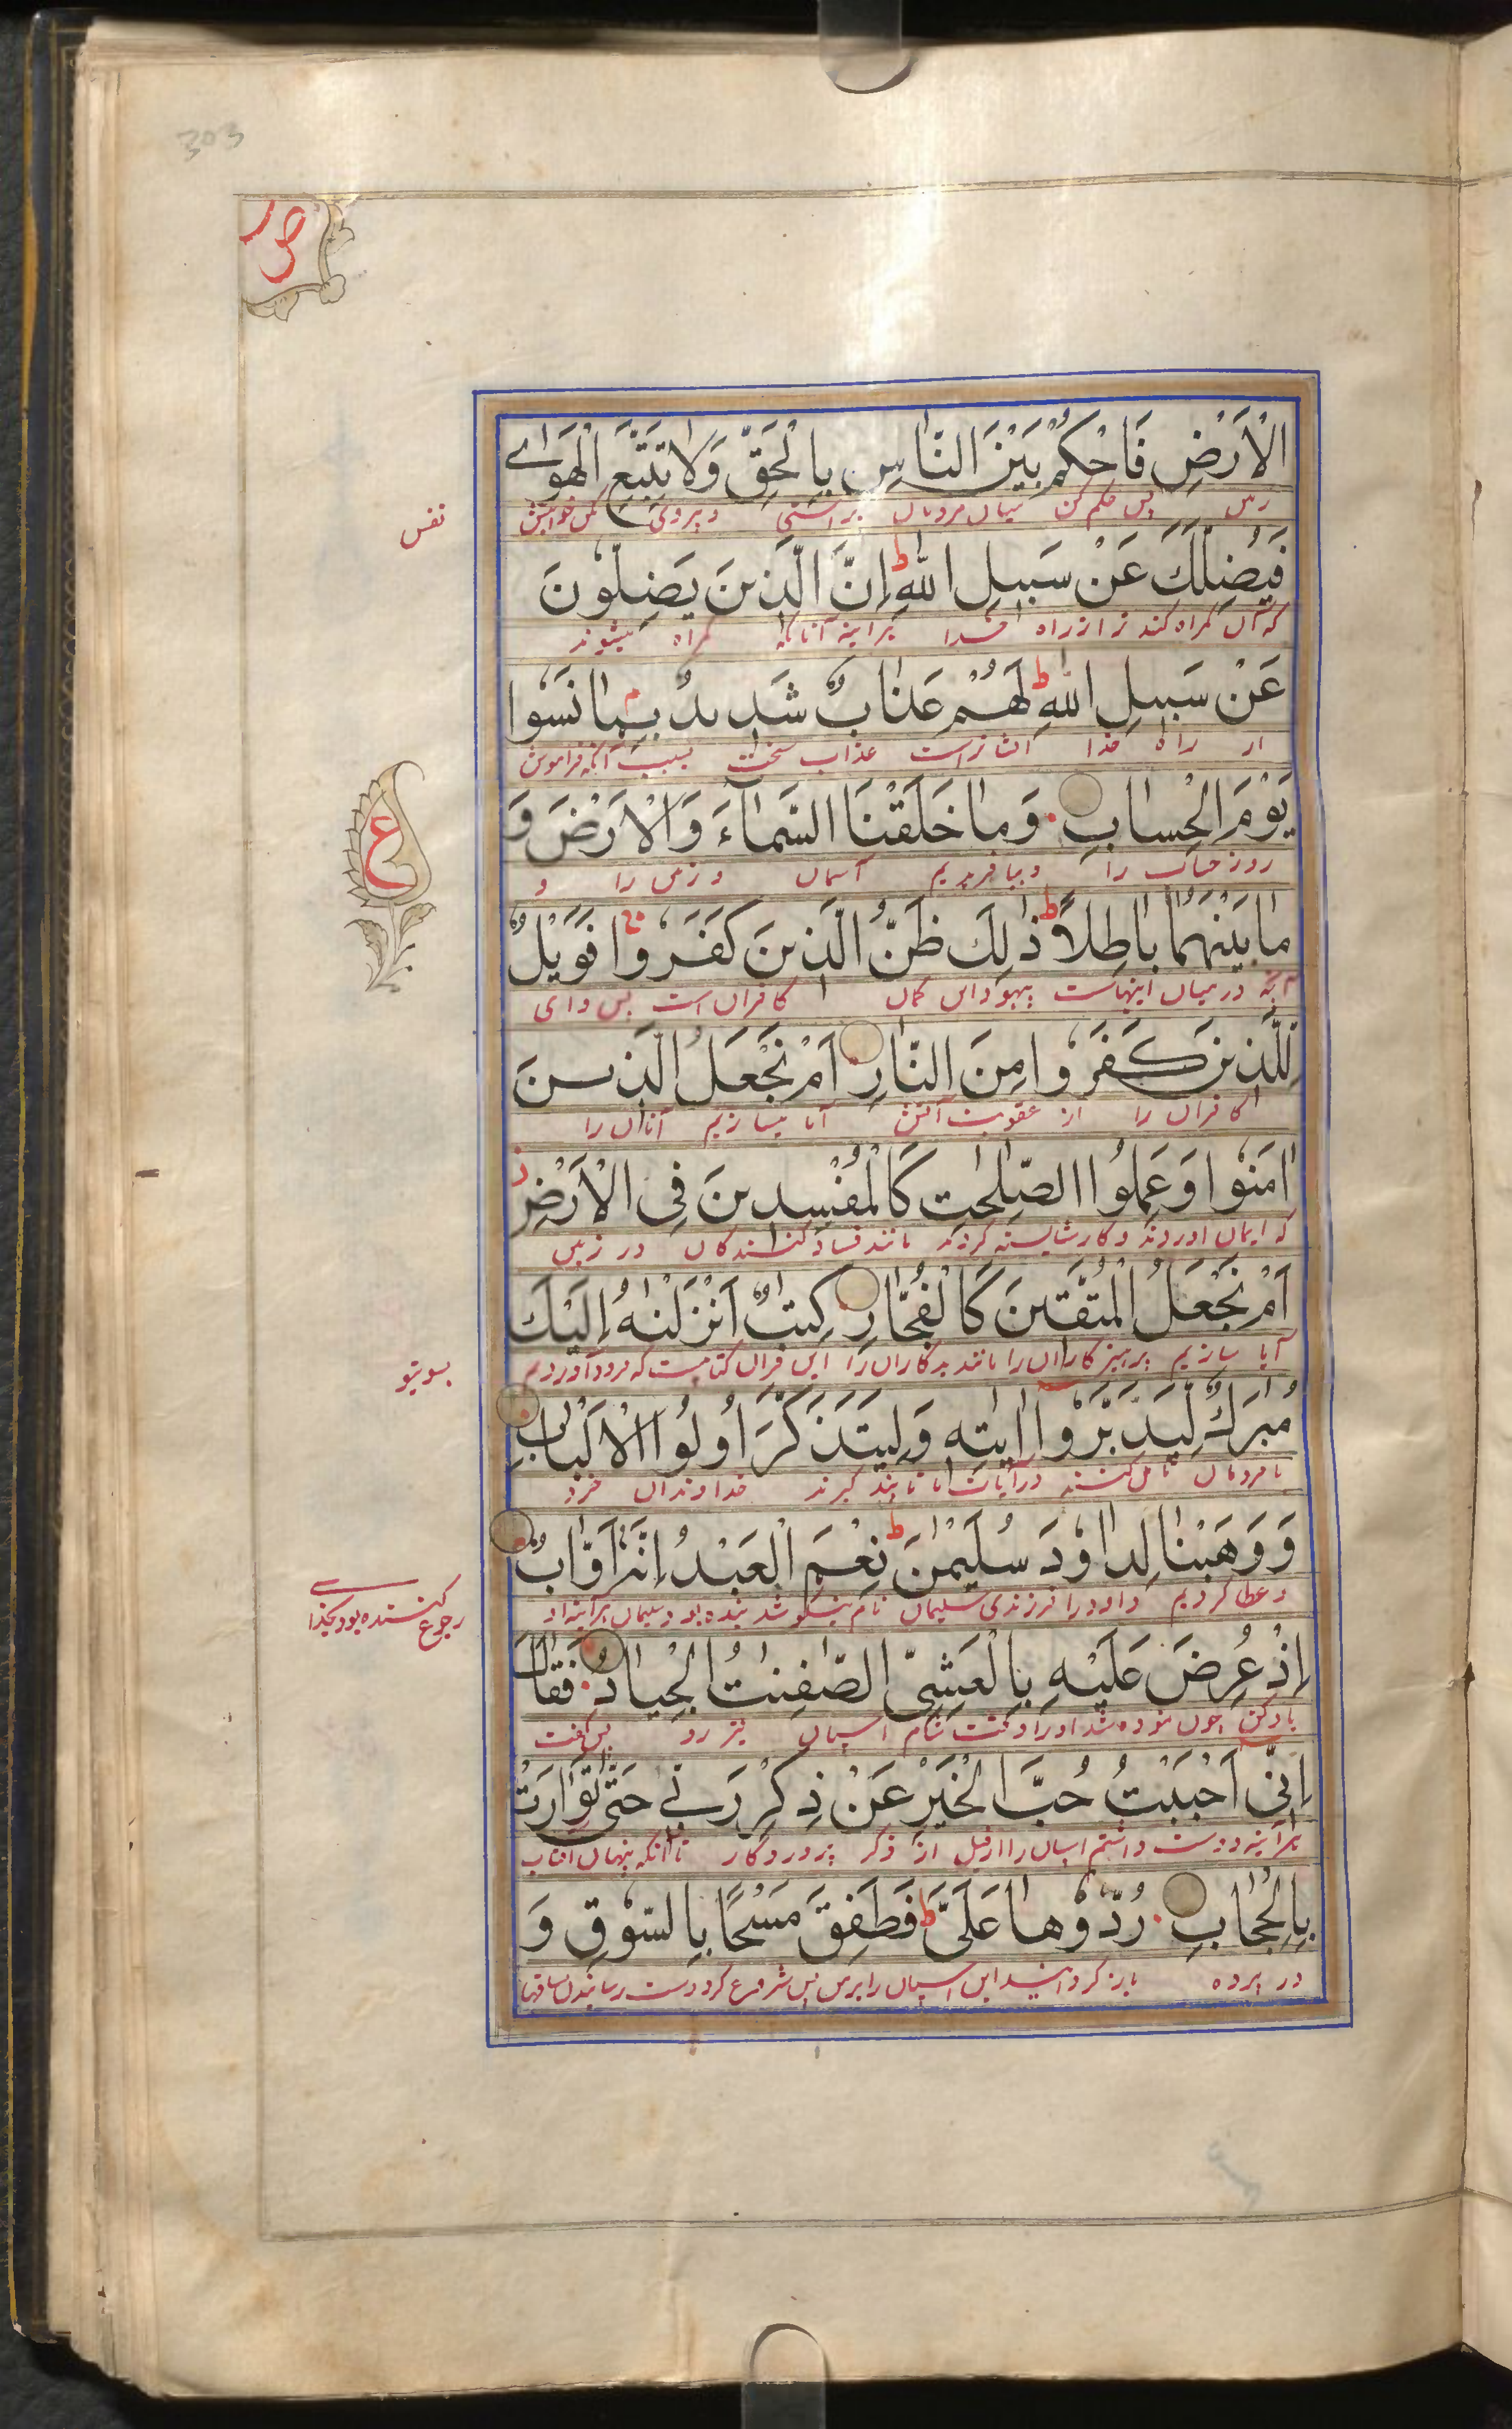 303
ص
الْاَرْضِ فَاحْكُمْ بَيْنَ النَّاسِ بِالْحَقِّ وَلَا تَتَّبِعِ الْهَوٰے
پس حکم کن میان مردمان براستی و پیروی مکن خواهش
نفس
فَيُضِلَّكَ عَنْ سَبِيلِ اللّٰهِ ط اِنَّ الَّذِينَ يَضِلُّونَ
گمراه کند ترا از راه خدا هر آینه آنانکه گمراه میشوند
عَنْ سَبِيلِ اللّٰهِ ط لَهُمْ عَذَابٌ شَدِيدٌ بِمَا نَسُوا
از راه خدا ایشانراست عذاب سخت بسبب آنکه فراموش
يَوْمَ الْحِسَابِ وَمَا خَلَقْنَا السَّمَآءَ وَالْاَرْضَ وَ
روز حساب را و نیافریدیم آسمان و زمین را و
ع
مَا بَيْنَهُمَا بَاطِلًا ط ذٰلِكَ ظَنُّ الَّذِينَ كَفَرُوا فَوَيْلٌ
آنچه در میان اینهاست بیهوده این گمان کافران است پس وای
لِلَّذِينَ كَفَرُوا مِنَ النَّارِ اَمْ نَجْعَلُ الَّذِينَ
کافران را از عقوبت آتش آیا میسازیم آنان را
اٰمَنُوا وَعَمِلُوا الصّٰلِحٰتِ كَالْمُفْسِدِينَ فِى الْاَرْضِ ز
که ایمان آوردند و کار شایسته کردند مانند فساد کنندگان در زمین
اَمْ نَجْعَلُ الْمُتَّقِينَ كَالْفُجَّارِ كِتٰبٌ اَنْزَلْنٰهُ اِلَيْكَ
آیا سازیم پرهیزکاران را مانند بدکاران را این قرآن کتابیست که فرود آوردیم
بسوی تو
مُبٰرَكٌ لِّيَدَّبَّرُوا اٰيٰتِهٖ وَلِيَتَذَكَّرَ اُولُوا الْاَلْبَابِ
تا مردمان تامل کنند در آیات تا پند گیرند خداوندان خرد
وَوَهَبْنَا لِدَاوٗدَ سُلَيْمٰنَ ط نِعْمَ الْعَبْدُ اِنَّهٗ اَوَّابٌ
و عطا کردیم داود را فرزندی سلیمان نام نیکو بنده بود سلیمان هر آینه او
رجوع کننده بود بخدا
اِذْ عُرِضَ عَلَيْهِ بِالْعَشِىِّ الصّٰفِنٰتُ الْجِيَادُ فَقَالَ
یاد کن چون نموده شد او را وقت شام اسپان تیز رو پس گفت
اِنِّى اَحْبَبْتُ حُبَّ الْخَيْرِ عَنْ ذِكْرِ رَبِّے حَتّٰى تَوَارَتْ
هر آینه دوست داشتم اسپان را از ذکر پروردگار تا آنکه پنهان آفتاب
بِالْحِجَابِ رُدُّوْهَا عَلَىَّ ط فَطَفِقَ مَسْحًا بِالسُّوقِ وَ
در پرده باز گردانید این اسپان را برمن پس شروع کرد دست رسانیدن ساقها